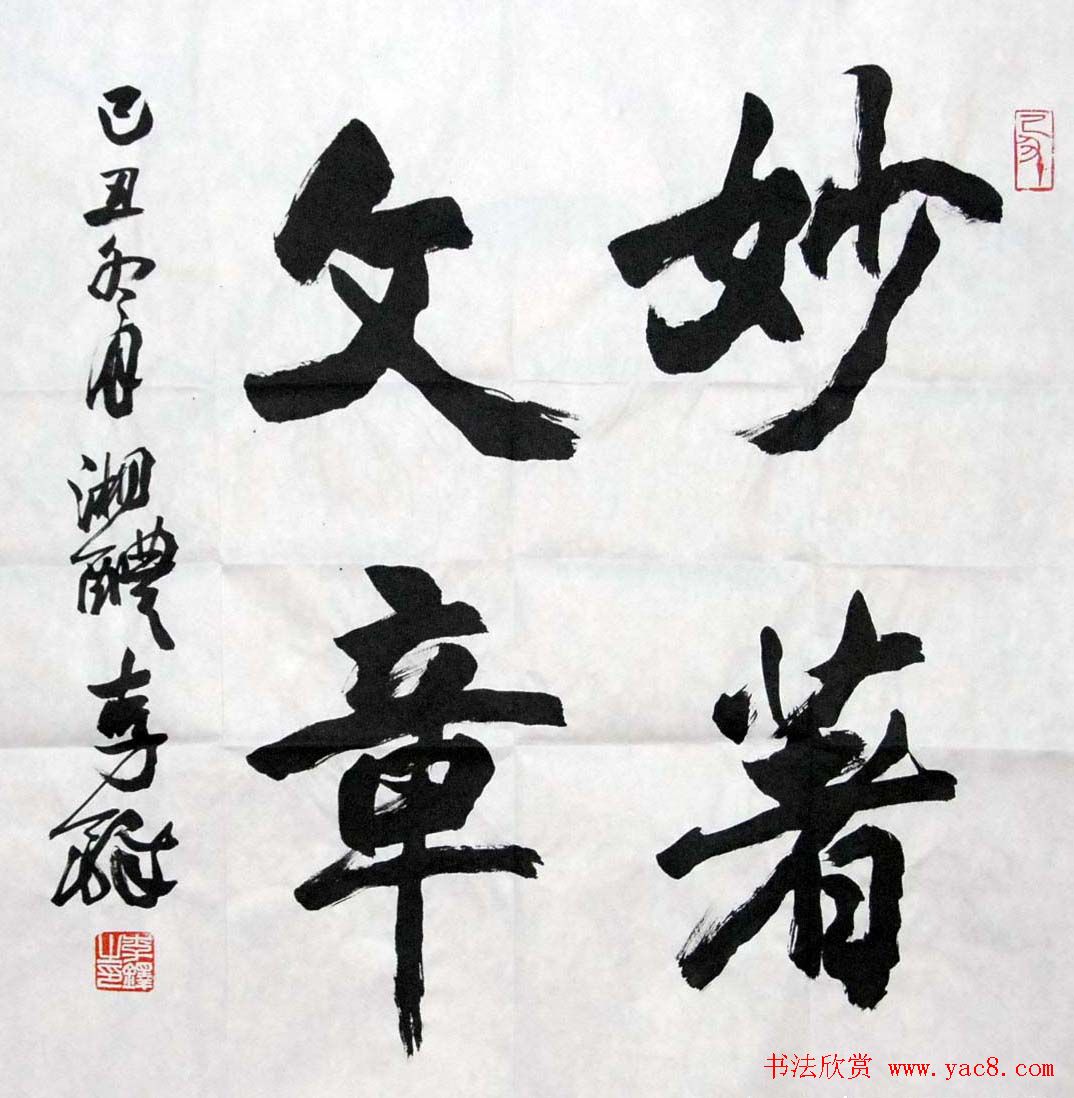 妙著
文章
己丑冬月湘醴李铎
李鐸之印
书法欣赏 www.yac8.com